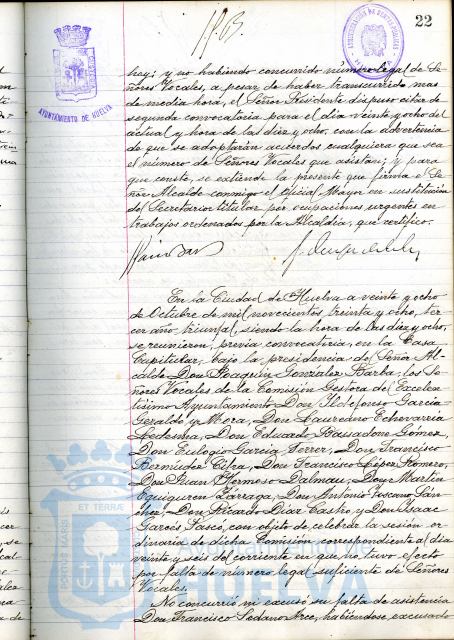 22
AYUNTAMIENTO DE HUELVA
hey; y no habiendo concurrido número legal de Se-
ñores Vocales, a pesar de haber transcurrido mas
de media hora, el Señor Presidente dispuso citar de
segunda convocatoria para el dia veinte y ocho del
actual y hora de las diez y ocho, con la advertencia
de que se adoptarán acuerdos cualquiera que sea
el número de Señores Vocales que asistan; y para
que conste, se extiende la presente que firma el Se-
ñor Alcalde conmigo el Oficial Mayor en sustitución
del Secretario titular por ocupaciones urgentes en
trabajos ordenados por la Alcaldia, que certifico.
En la Ciudad de Huelva a veinte y ocho
de Octubre de mil novecientos treinta y ocho, ter-
cer año triunfal, siendo la hora de las diez y ocho,
se reunieron, previa convocatoria, en la Casa
Capitular, bajo la presidencia del Señor Al-
calde Don Joaquin Gonzalez Barba, los Se-
ñores Vocales de la Comisión Gestora del Excelen-
tisimo Ayuntamiento Don Ildefonso Garcia-
Geraldo y Mora, Don Laureano Echevarria
Ledesma, Don Eduardo Bassadone Gómez,
Don Eulogio Garcia Ferrer, Don Francisco
Bermudez Cifra, Don Francisco López Romero,
Don Juan Hermoso Dalmau, Don Martin
Eguiguren Zárraga, Don Antonio Toscano Sán-
chez, Don Ricardo Diaz Castro y Don Isaac
Garcés Pascó, con objeto de celebrar la sesión or-
dinaria de dicha Comisión correspondiente al dia
veinte y seis del corriente en que no tuvo efecto
por falta de número legal suficiente de Señores
Vocales.
No concurrió ni excusó su falta de asistencia
Don Francisco Sedano Arce, habiendose excusado
PORTUS MARIS ET TERRÆ
HUELVA